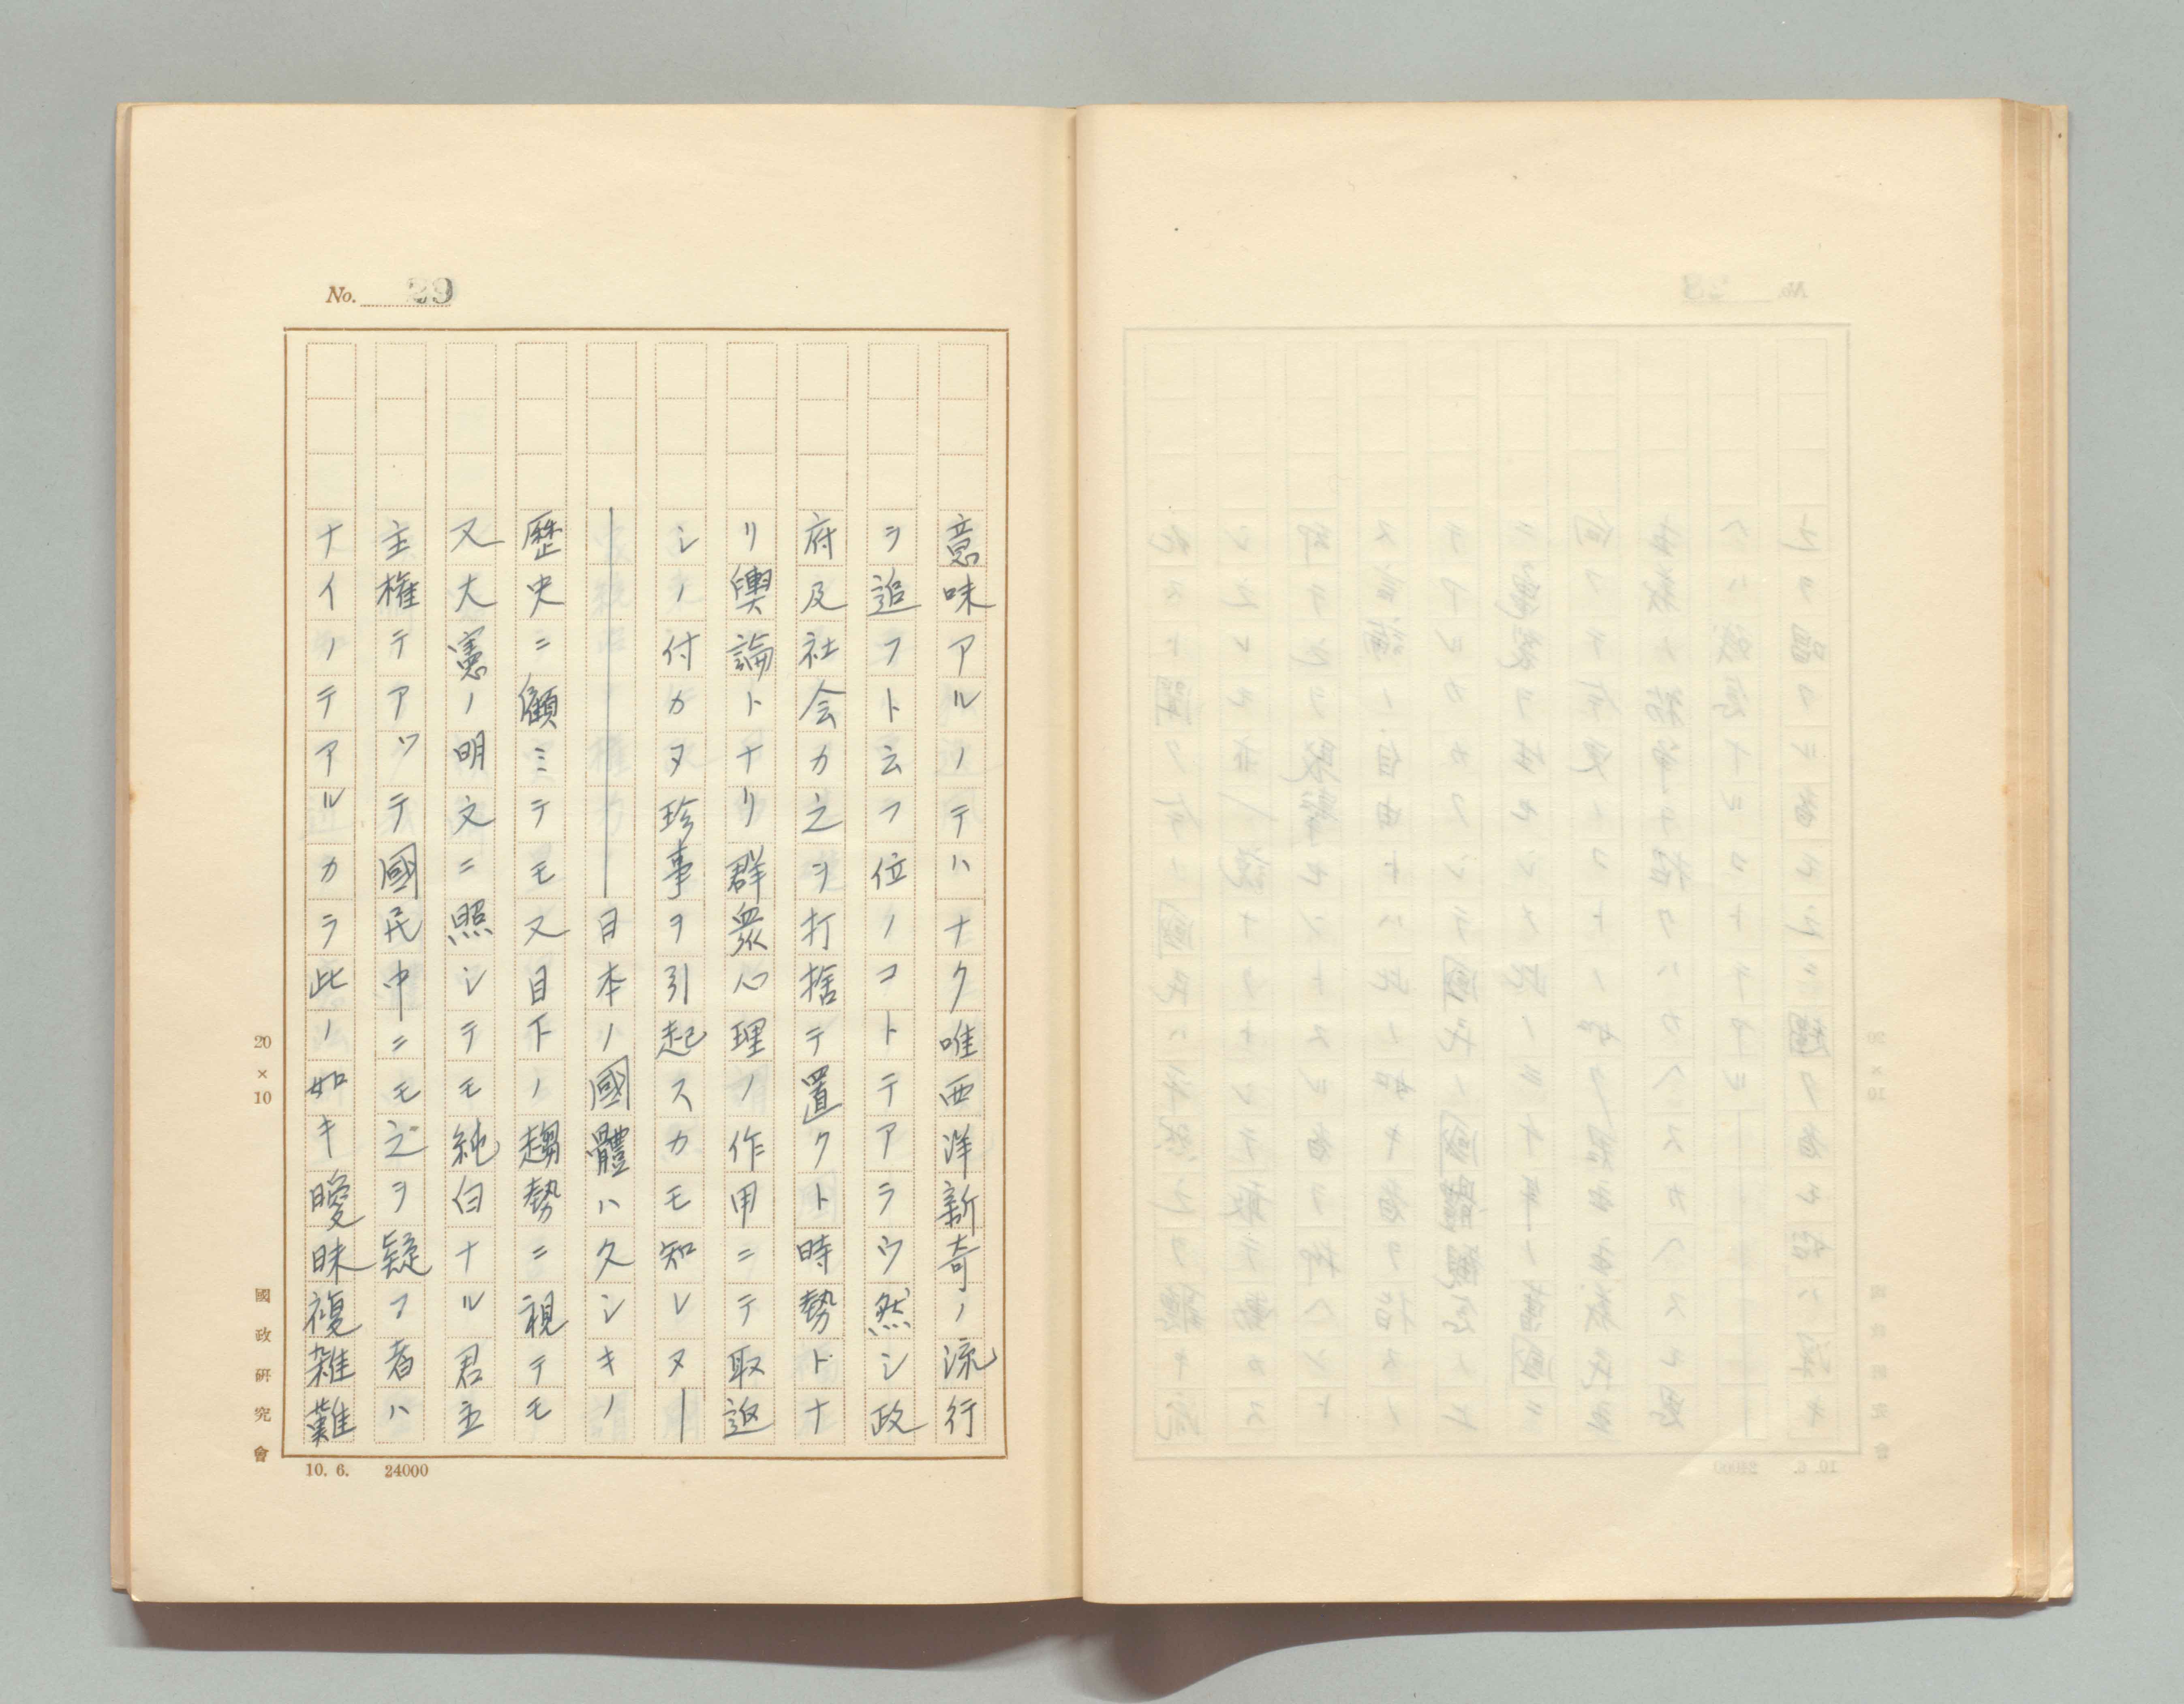 No. 29
意味アルノテハナク唯西洋新奇ノ流行
ヲ追フト云フ位ノコトテアラウ然シ政
府及社会カ之ヲ打捨テ置クト時勢トナ
リ輿論トナリ群衆心理ノ作用ニテ取返
シノ付カヌ珍事ヲ引起スカモ知レヌ―
―――――――日本ノ國體ハ久シキノ
歴史ニ顧ミテモ又目下ノ趨勢ニ視テモ
又大憲ノ明文ニ照シテモ純白ナル君主
主権テアツテ國民中ニモ之ヲ疑フ者ハ
ナイノテアルカラ此ノ如キ曖昧複雑難
20×10
國政研究會
10. 6. 24000